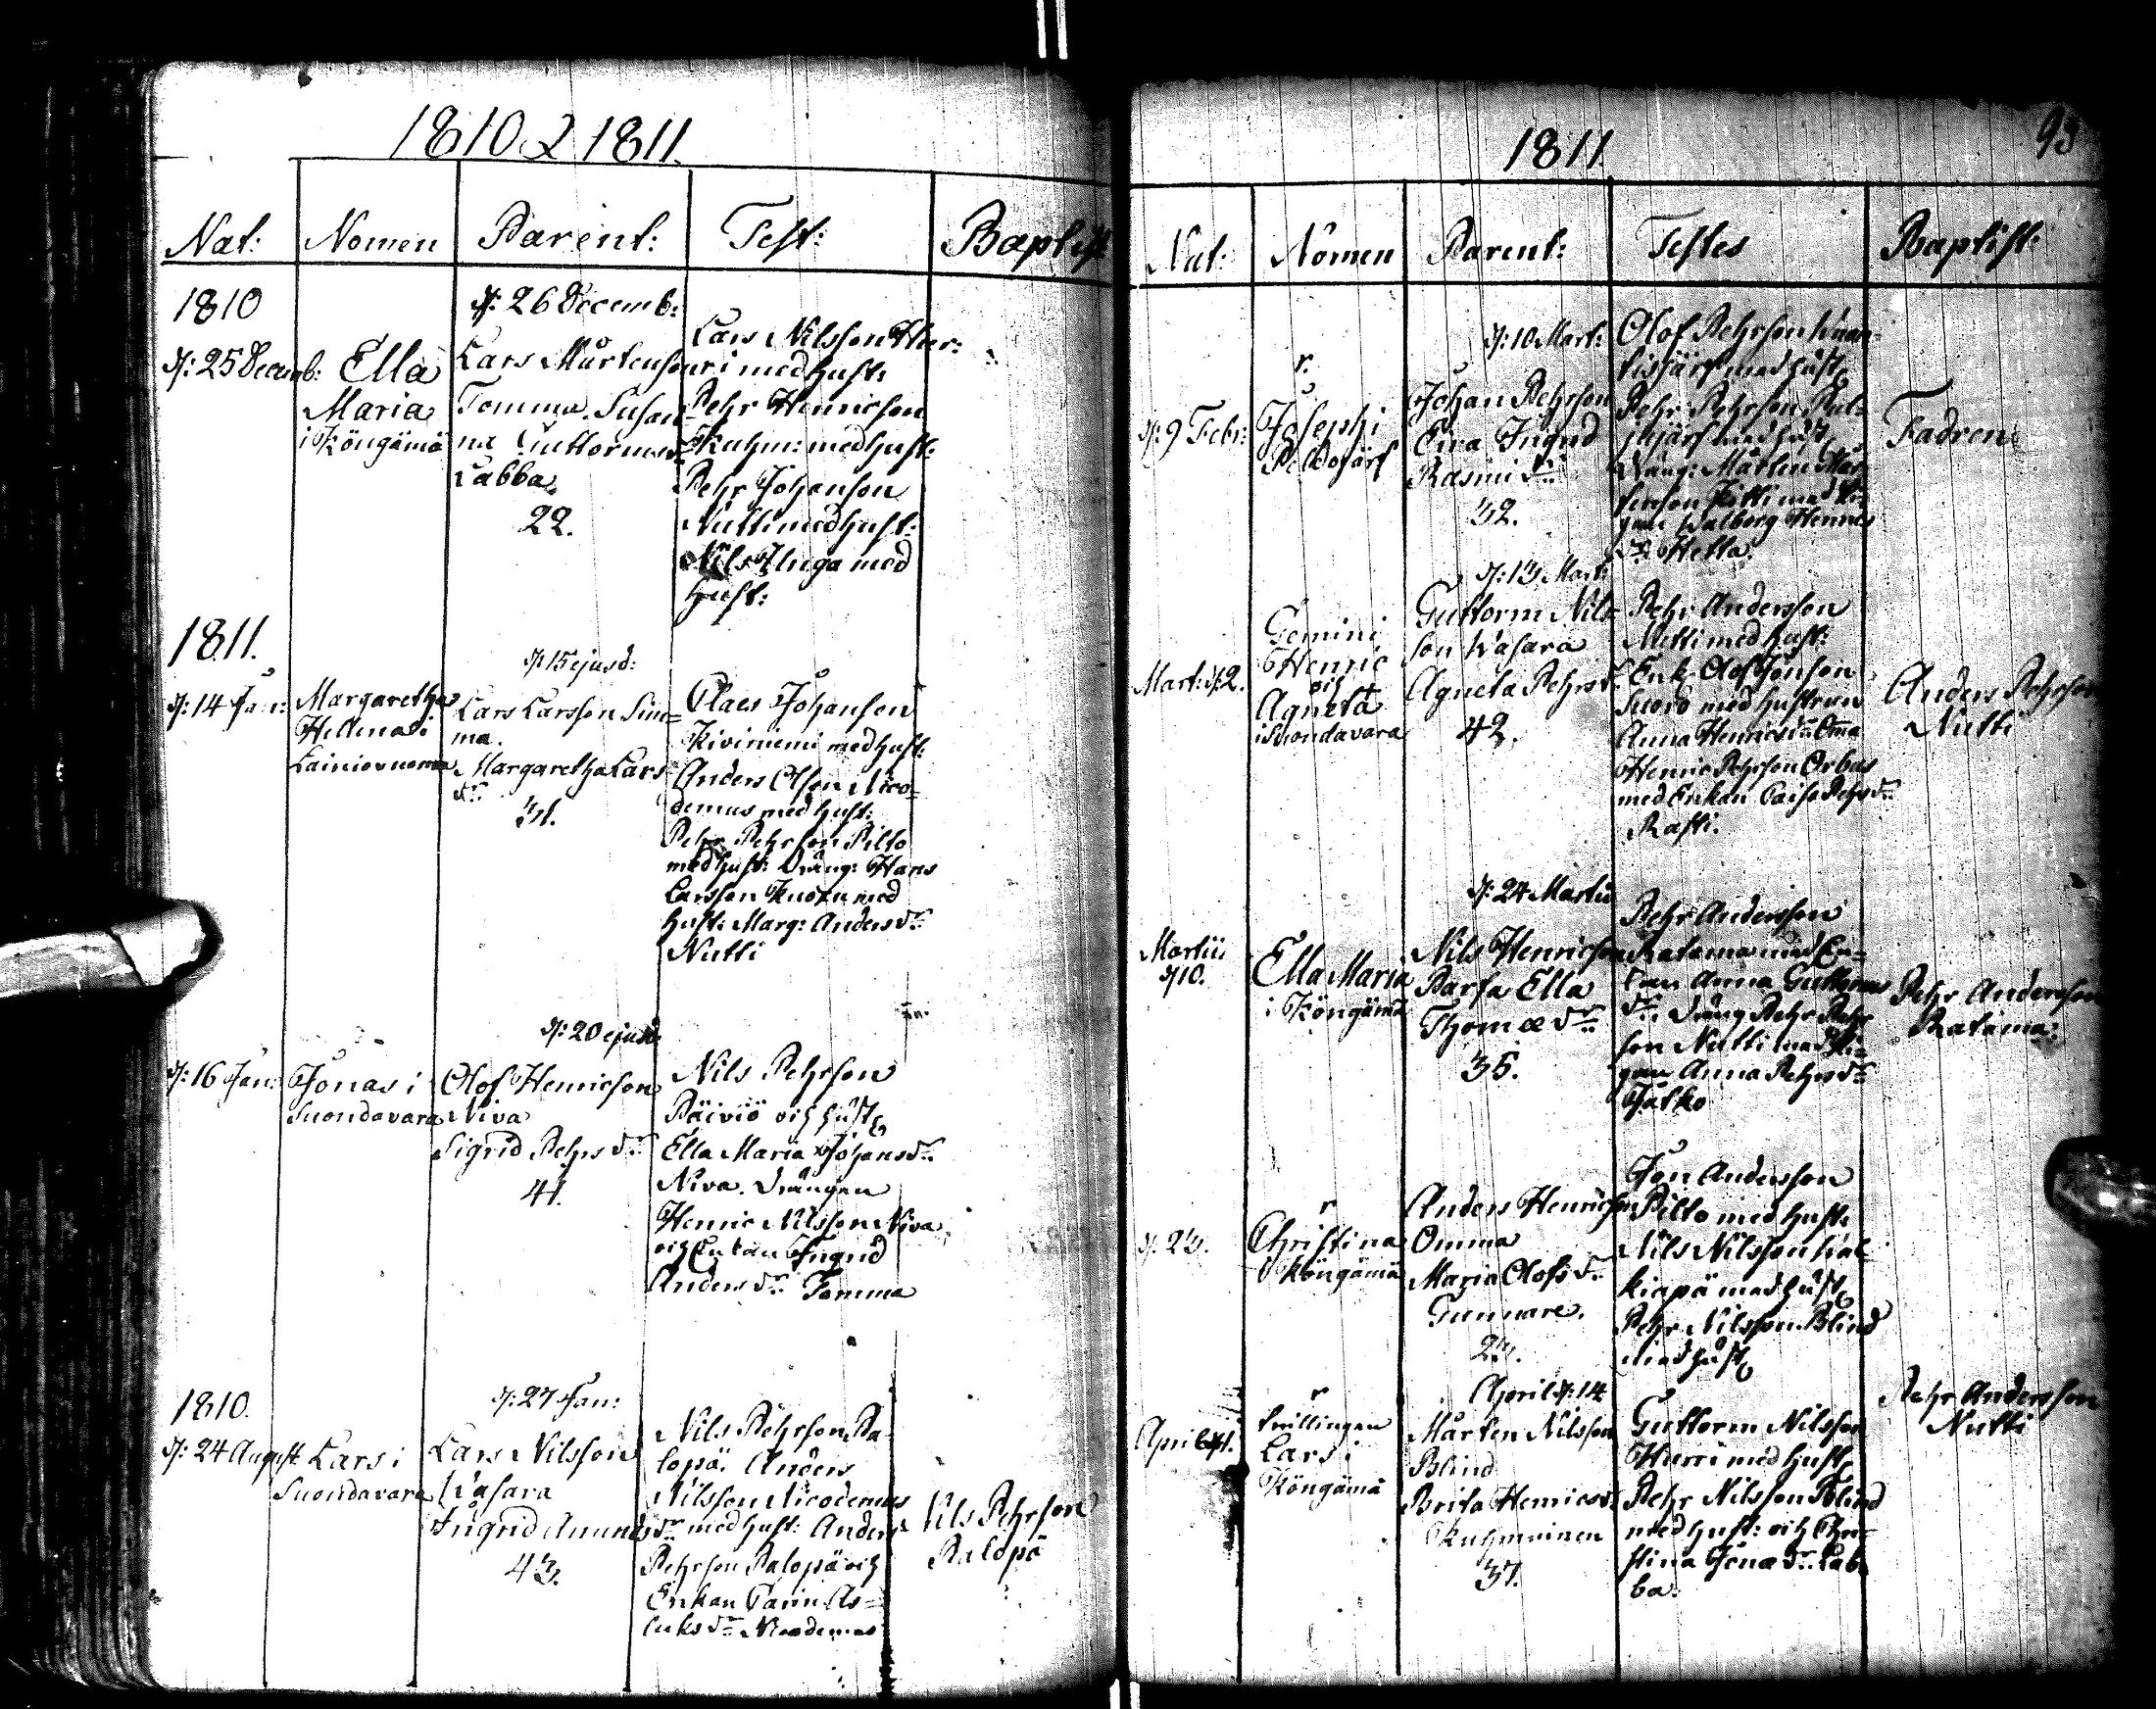 1810 & 1811.
Nat: Nomen Parent: Test: Baptist
1810
d: 25 Decemb: Ella
Maria
i Köngämä
d: 26 Decemb:
Lars Mårtenson
Tomma. Susan
na Guttorms dr
Labba
22.
Lars Nilsson Hur:
ri med hust:
Pehr Henricson
Kuhm: med hust:
Pehr Johanson
Nutti med hust:
Nils Unga med
hust:
1811.
d: 14 Jan:
Margaretha
Hellena i
Lainiovuoma
d: 15 ejusd:
Lars Larsson Sim=
ma.
Margaretha Lars
dr
31.
Claes Johanson
Kiviniemi med hust:
Anders Olson Nico=
demus med hust:
Pehr Pehrson Pilto
med hust: Dräng: Hans
Larsson Kuoxu med
hust: Marg: Anders dr
Nutti
d: 16 Jan:
Jonas i
Suondavara
d: 20 ejusd:
Olof Henricson
Niva
Sigrid Pehrs dr
41.
Nils Pehrson
Päiviö och hust
Ella Maria Johans dr
Niva. Drängen
Henric Nilsson Niva
och Enkan Ingrid
Anders dr Tomma
1810.
d: 24 August
Lars i
Suondavara
d: 27 Jan:
Lars Nilsson
Wasara
Ingrid Amunds dr
43.
Nils Pehrson Pa
lopä. Anders
Nilsson Nicodemus
med hust: Anders
Pehrson Palopä och
Enkan Carin As=
laks dr Nicodemus
Nils Pehrson
Palopä
1811
93
Nat: Nomen Parent: Testes Baptist:
d: 9 Febr:
r.
Josephi
Peldojärf
d: 10 Mart:
Johan Pehrson
Eva Ingrid
Rasmi dr
32.
Olof Pehrson
med hust
Pehr Pehrson
med hust
Dräng: Mårten Mår
tenson med Pi
gan Walborg Henrics
dr Hetta.
Fadren
Mart: d: 2.
Gemini
Henric
och
Agneta
i Suondavara
d: 13 Mart:
Guttorm Nils=
son Wasara
Agneta Pehrs dr
42.
Pehr Andersson
Nutti med hust:
Enk: Olof Jonson
Suord med hustrun
Anna Henrics dr Omma
Henric Pehrson Orbus
med Enkan Caisa Pehrs dr
Rasti.
Anders Pehrson
Nutti
Martii
d 10.
Ella Maria
i Köngämä
d: 24 Martii
Nils Henricson
Parfa Ella
Thomæ dr
35.
Pehr Andersson
Ratama med En=
kan Anna Guttorms
dr. Dräng Pehr Pehr
son Nutti med Pi=
gan Anna Pehrs dr
Jatko
Pehr Andersson
Ratama:
d: 23.
r
Christina
i Köngämä
Anders Henricson
Omma
Maria Olofs dr
Gunnare.
23.
Jon Andersson
Pilto med hust:
Nils Nilsson Wal
kiapä med hust
Pehr Nilsson Blind
med hust
April d 1.
r
tvillingen
Lars i
Köngämä
April d: 14
Mårten Nilsson
Blind
Brita Henrics dr
Kuhmuinen
37.
Guttorm Nilsson
Hurri med hust
Pehr Nilsson Blind
med hust: och Chri=
stina Jonæ dr Lab=
ba.
Pehr Andersson
Nutti